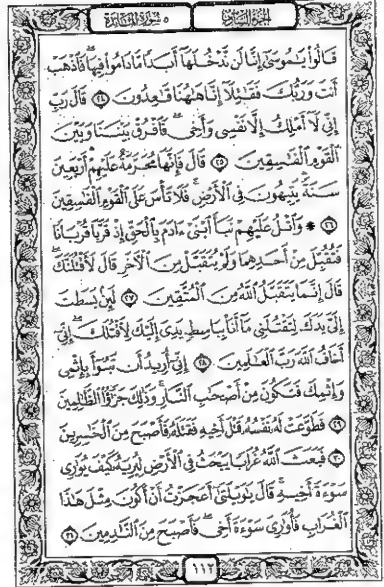 الجزء السادس ٥ سورة المائدة
قَالُوا۟ يَٰمُوسَىٰٓ إِنَّا لَن نَّدْخُلَهَآ أَبَدًا مَّا دَامُوا۟ فِيهَا فَٱذْهَبْ
أَنتَ وَرَبُّكَ فَقَٰتِلَآ إِنَّا هَٰهُنَا قَٰعِدُونَ ٢٤ قَالَ رَبِّ
إِنِّى لَآ أَمْلِكُ إِلَّا نَفْسِى وَأَخِى فَٱفْرُقْ بَيْنَنَا وَبَيْنَ
ٱلْقَوْمِ ٱلْفَٰسِقِينَ ٢٥ قَالَ فَإِنَّهَا مُحَرَّمَةٌ عَلَيْهِمْ أَرْبَعِينَ
سَنَةً يَتِيهُونَ فِى ٱلْأَرْضِ فَلَا تَأْسَ عَلَى ٱلْقَوْمِ ٱلْفَٰسِقِينَ
٢٦ * وَٱتْلُ عَلَيْهِمْ نَبَأَ ٱبْنَىْ ءَادَمَ بِٱلْحَقِّ إِذْ قَرَّبَا قُرْبَانًا
فَتُقُبِّلَ مِنْ أَحَدِهِمَا وَلَمْ يُتَقَبَّلْ مِنَ ٱلْءَاخَرِ قَالَ لَأَقْتُلَنَّكَ
قَالَ إِنَّمَا يَتَقَبَّلُ ٱللَّهُ مِنَ ٱلْمُتَّقِينَ ٢٧ لَئِنۢ بَسَطتَ
إِلَىَّ يَدَكَ لِتَقْتُلَنِى مَآ أَنَا۠ بِبَاسِطٍ يَدِىَ إِلَيْكَ لِأَقْتُلَكَ إِنِّىٓ
أَخَافُ ٱللَّهَ رَبَّ ٱلْعَٰلَمِينَ ٢٨ إِنِّىٓ أُرِيدُ أَن تَبُوٓأَ بِإِثْمِى
وَإِثْمِكَ فَتَكُونَ مِنْ أَصْحَٰبِ ٱلنَّارِ وَذَٰلِكَ جَزَٰٓؤُا۟ ٱلظَّٰلِمِينَ
٢٩ فَطَوَّعَتْ لَهُۥ نَفْسُهُۥ قَتْلَ أَخِيهِ فَقَتَلَهُۥ فَأَصْبَحَ مِنَ ٱلْخَٰسِرِينَ
٣٠ فَبَعَثَ ٱللَّهُ غُرَابًا يَبْحَثُ فِى ٱلْأَرْضِ لِيُرِيَهُۥ كَيْفَ يُوَٰرِى
سَوْءَةَ أَخِيهِ قَالَ يَٰوَيْلَتَىٰٓ أَعَجَزْتُ أَنْ أَكُونَ مِثْلَ هَٰذَا
ٱلْغُرَابِ فَأُوَٰرِىَ سَوْءَةَ أَخِى فَأَصْبَحَ مِنَ ٱلنَّٰدِمِينَ ٣١
١١٢